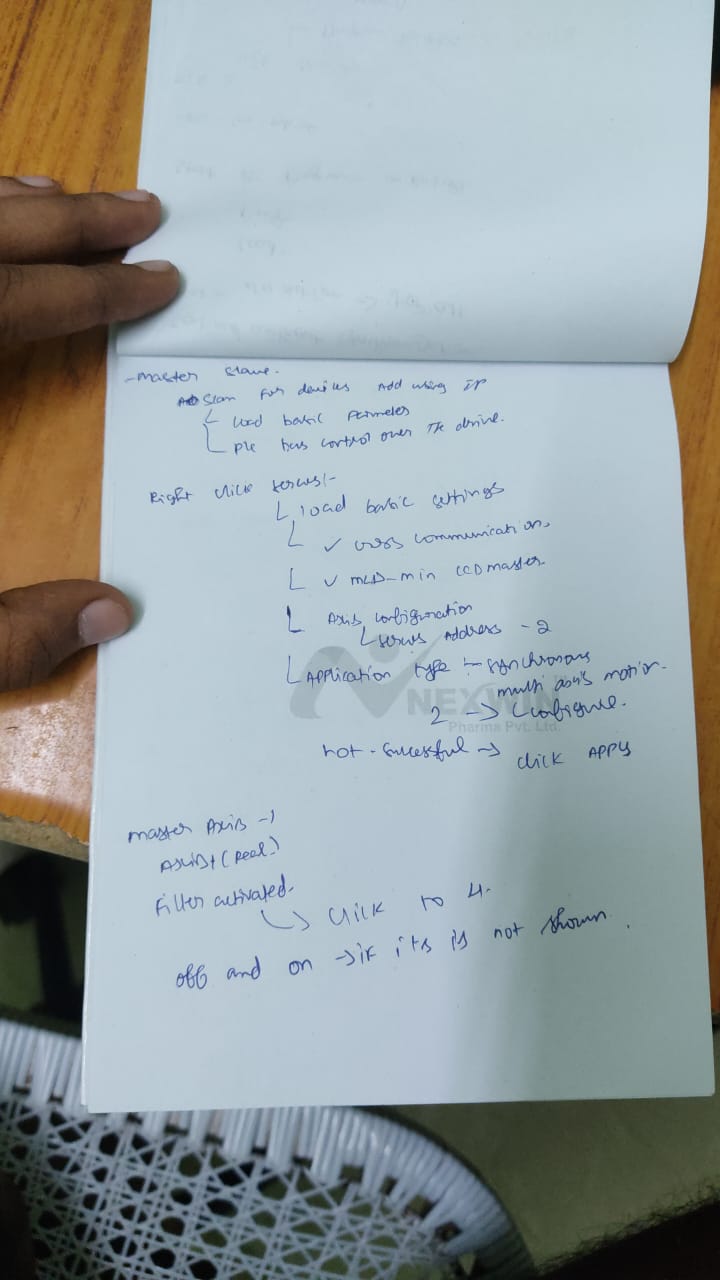 - Master slave.
Scan for devices Add using IP
load basic Permeter
PLC has control over The drive.
Right click servus:-
load basic settings
✓ cross communication.
✓ MLD-M in CCD master.
Axis configuration
servus Address - 2
Application type :- synchronous
multi axis motion.
2 → configure.
not - successful → click APPly
NEXWIN
Pharma Pvt. Ltd.
master Axis - 1
Axis 1 (Real)
Filter activated.
click to 4.
off and on → if its is not shown.